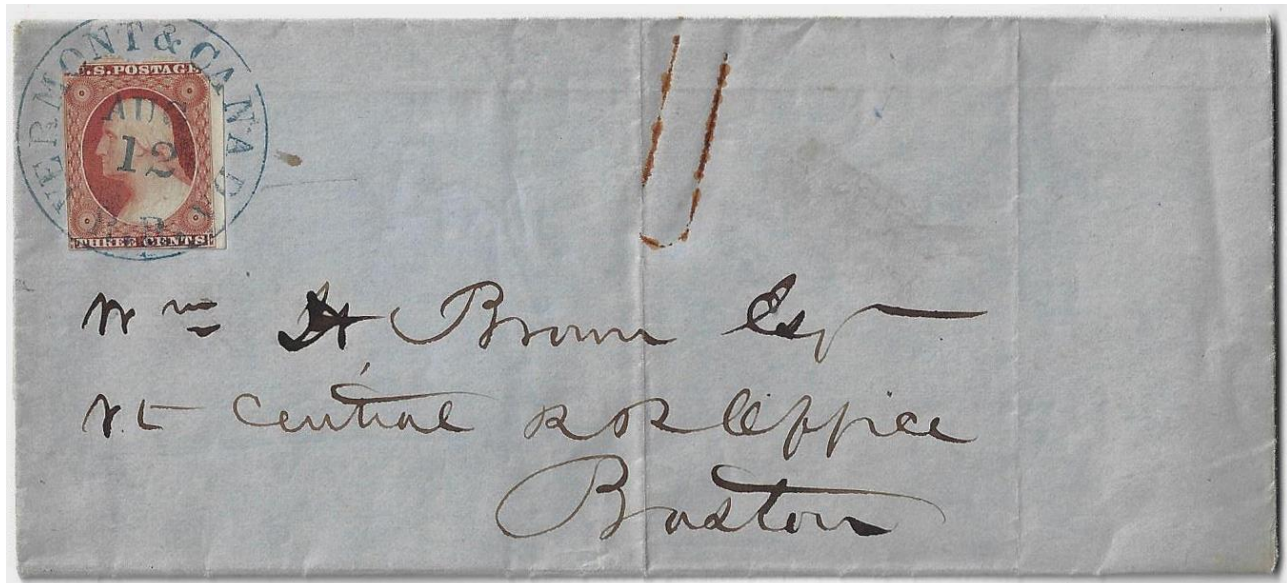 VERMONT & CANADA R.R.
U.S. POSTAGE
AUG
12
THREE CENTS
Wm H Brown Esq
Vt Central RR Office
Boston